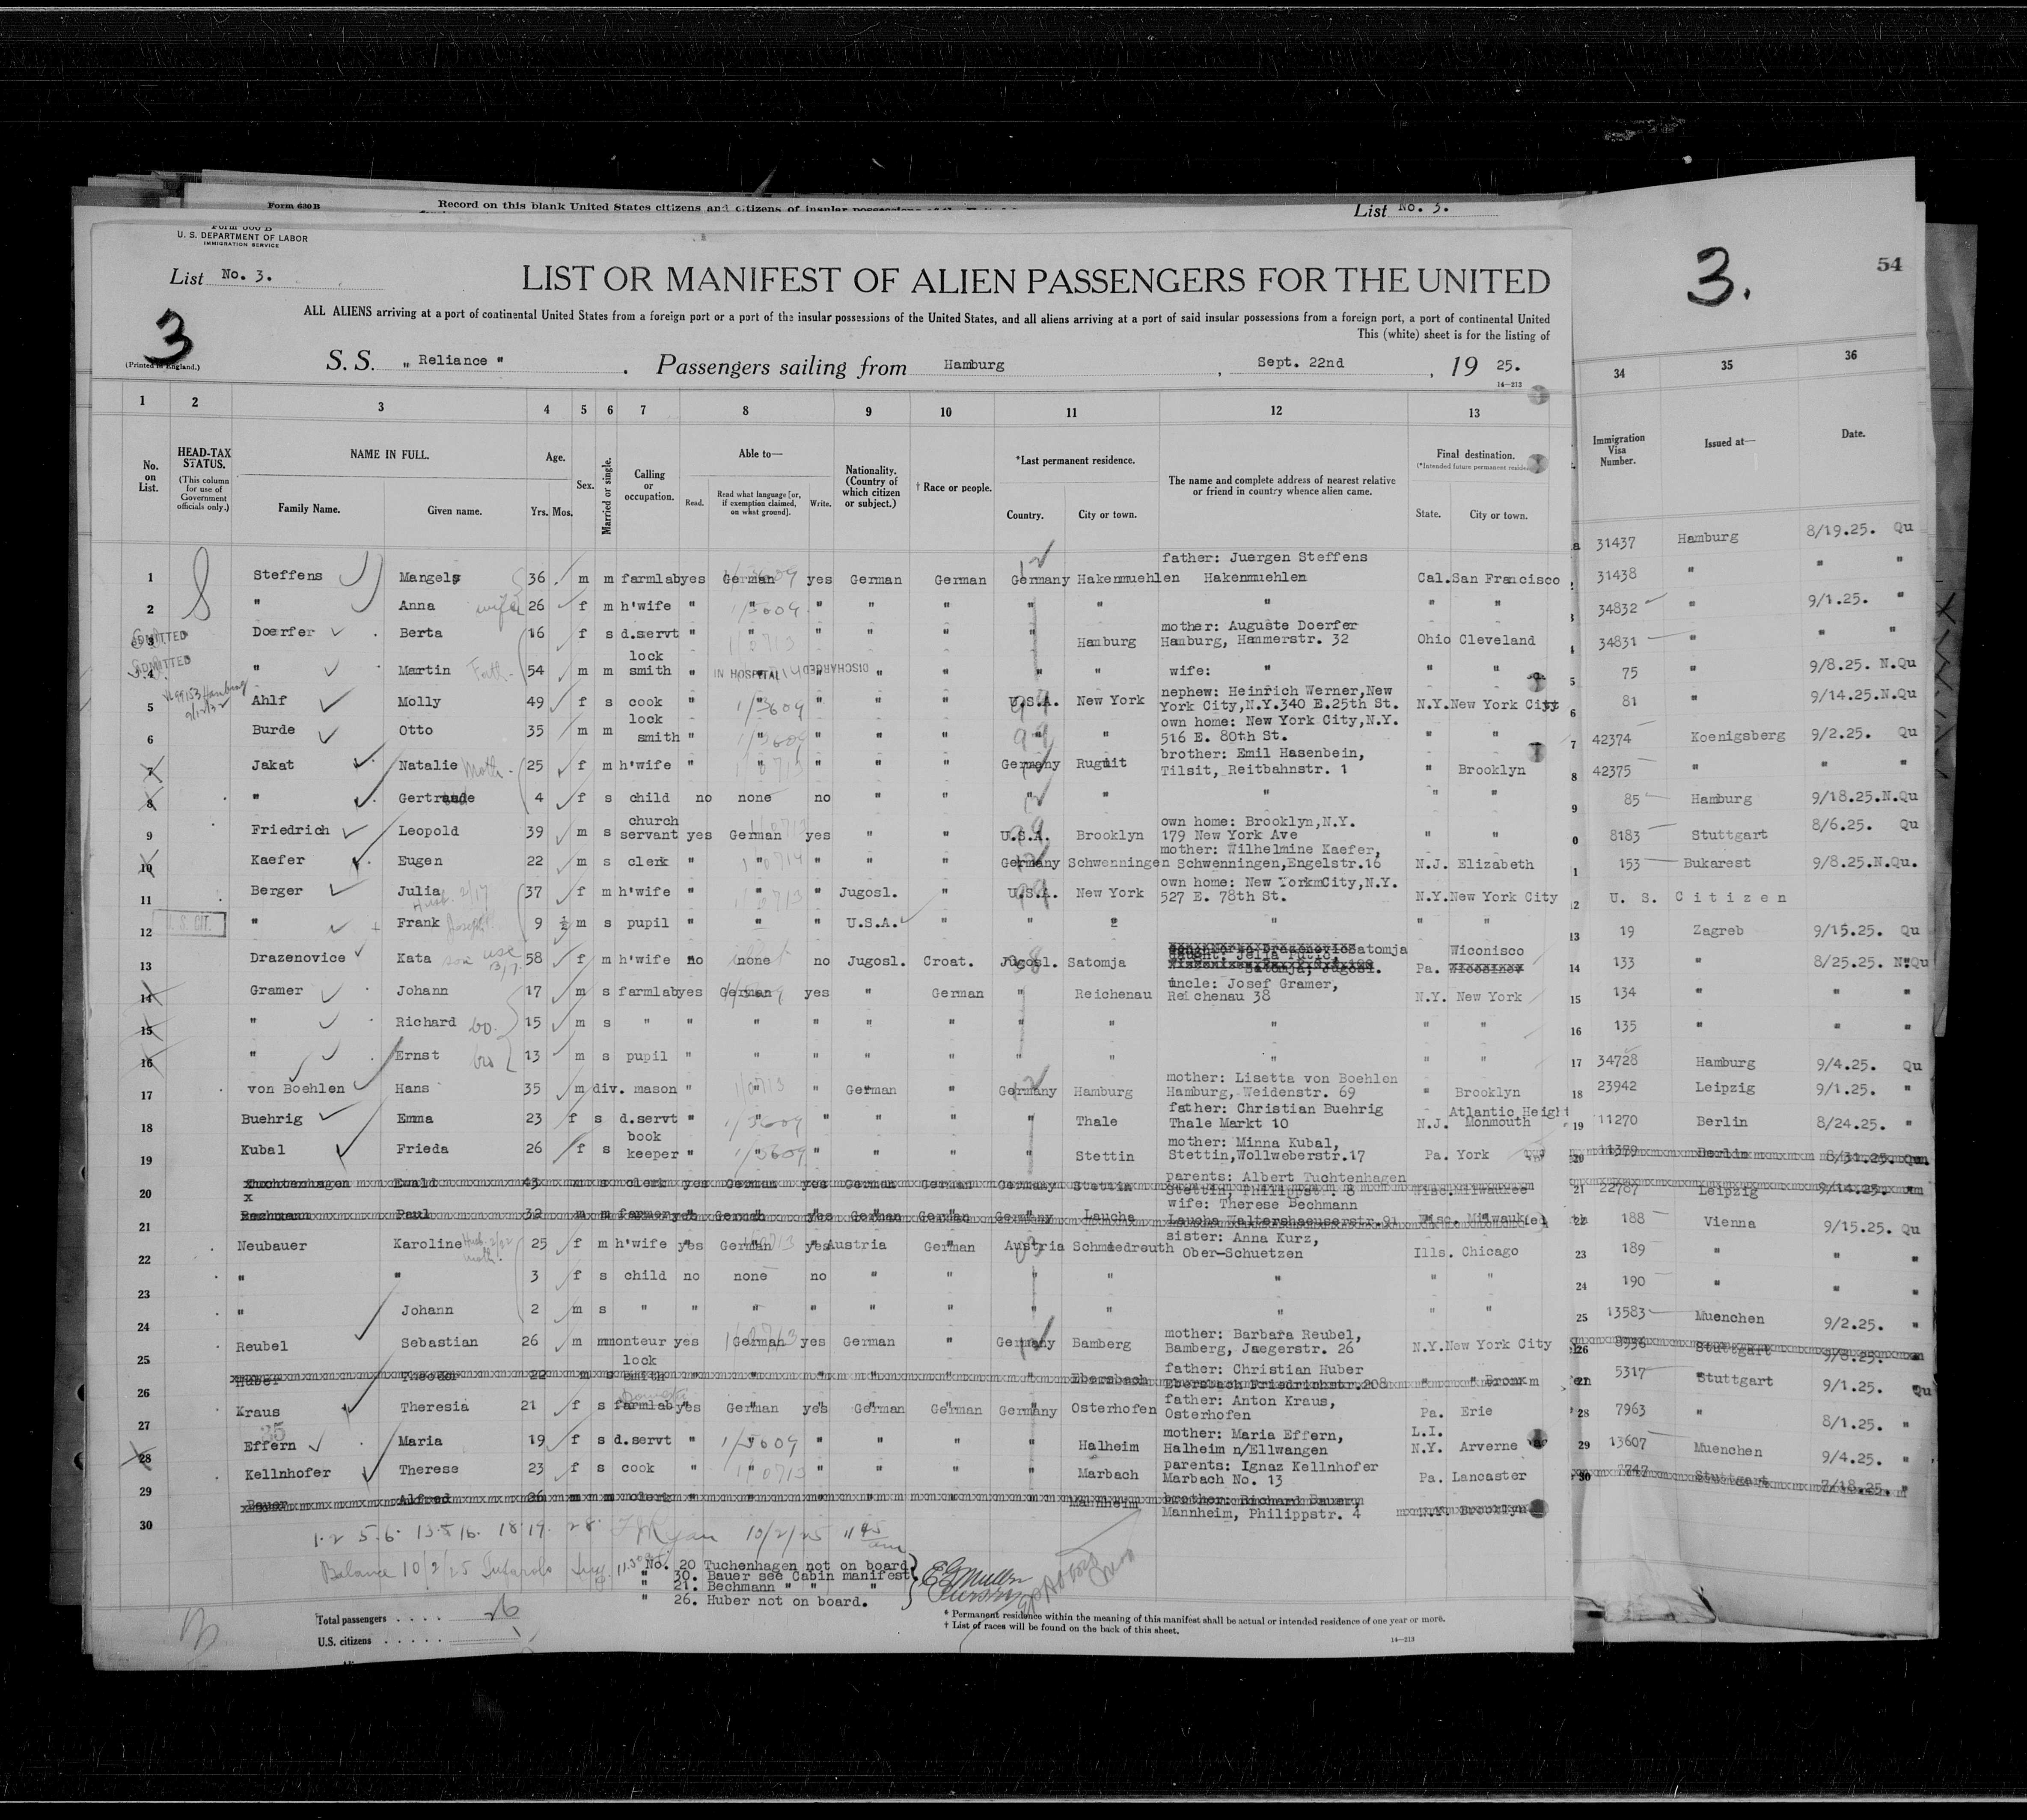 Form 630 B Record on this blank United States citizens and citizens of insular possessions of the
List No. 3.
Form 500 B
U. S. DEPARTMENT OF LABOR
IMMIGRATION SERVICE
List No. 3. LIST OR MANIFEST OF ALIEN PASSENGERS FOR THE UNITED
3. 54
3
(Printed in England.)
ALL ALIENS arriving at a port of continental United States from a foreign port or a port of the insular possessions of the United States, and all aliens arriving at a port of said insular possessions from a foreign port, a port of continental United
This (white) sheet is for the listing of
S. S. „ Reliance " . Passengers sailing from Hamburg , Sept. 22nd , 19 25.
14—213
1 2 3 4 5 6 7 8 9 10 11 12 13 34 35 36
No. on List.
HEAD-TAX STATUS.
(This column for use of Government officials only.)
NAME IN FULL.
Family Name. Given name.
Age.
Yrs. Mos.
Sex.
Married or single.
Calling or occupation.
Able to—
Read. Read what language [or, if exemption claimed, on what ground]. Write.
Nationality. (Country of which citizen or subject.)
† Race or people.
*Last permanent residence.
Country. City or town.
The name and complete address of nearest relative or friend in country whence alien came.
Final destination.
(*Intended future permanent residence
State. City or town.
Immigration Visa Number. Issued at— Date.
father: Juergen Steffens
1 Steffens Mangels 36 m m farmlab yes German yes German German Germany Hakenmuehlen Hakenmuehlen Cal. San Francisco
2 " Anna wife 26 f m h'wife " " " " " " " " " "
mother: Auguste Doerfer
ADMITTED 3 Doerfer Berta 16 f s d.servt " " " " " " Hamburg Hamburg, Hammerstr. 32 Ohio Cleveland
lock
ADMITTED 4 " Martin Fath. 54 m m smith " IN HOSPITAL DISCHARGED " " " " " wife: " " "
nephew: Heinrich Werner,New
5 Ahlf Molly 49 f s cook " " " " " U.S.A. New York York City,N.Y.340 E.25th St. N.Y. New York City
lock own home: New York City,N.Y.
6 Burde Otto 35 m m smith " " " " " " " 516 E. 80th St. " "
brother: Emil Hasenbein,
7 Jakat Natalie Moth. 25 f m h'wife " " " " " Germany Rugnit Tilsit, Reitbahnstr. 1 " Brooklyn
8 " Gertrude 4 f s child no none no " " " " " " "
church own home: Brooklyn,N.Y.
9 Friedrich Leopold 39 m s servant yes German yes " " U.S.A. Brooklyn 179 New York Ave " "
mother: Wilhelmine Kaefer,
10 Kaefer Eugen 22 m s clerk " " " " " Germany Schwenningen Schwenningen,Engelstr.16 N.J. Elizabeth
own home: New York City,N.Y.
11 Berger Julia 37 f m h'wife " " " Jugosl. " U.S.A. New York 527 E. 78th St. N.Y. New York City
U. S. CIT. 12 " Frank Joseph 9 ½ m s pupil " " " U.S.A. " " " " " "
Satomja Wiconisco
13 Drazenovice Kata 58 f m h'wife no none no Jugosl. Croat. Jugosl. Satomja Satomja, Jugosl. Pa.
uncle: Josef Gramer,
14 Gramer Johann 17 m s farmlab yes German yes " German " Reichenau Reichenau 38 N.Y. New York
15 " Richard bo. 15 m s " " " " " " " " " " "
16 " Ernst bro 13 m s pupil " " " " " " " " " "
mother: Lisetta von Boehlen
17 von Boehlen Hans 35 m div. mason " " " German " Germany Hamburg Hamburg, Weidenstr. 69 " Brooklyn
father: Christian Buehrig Atlantic Height
18 Buehrig Emma 23 f s d.servt " " " " " " Thale Thale Markt 10 N.J. Monmouth
book mother: Minna Kubal,
19 Kubal Frieda 26 f s keeper " " " " " " Stettin Stettin,Wollweberstr.17 Pa. York
parents: Albert Tuchtenhagen
20 Tuchtenhagen Ewald 43 m s clerk yes German yes German German Germany Stettin Stettin, Philippstr. 8 Wisc. Milwaukee
wife: Therese Bechmann
21 Bechmann Paul 32 m m farmer yes German yes German German Germany Laucha Laucha Waltershaeuserstr.91 Wisc. Milwaukee
sister: Anna Kurz,
22 Neubauer Karoline 25 f m h'wife yes German yes Austria German Austria Schmiedreuth Ober-Schuetzen Ills. Chicago
23 " " 3 f s child no none no " " " " " " "
24 " Johann 2 m s " " " " " " " " " " "
mother: Barbara Reubel,
25 Reubel Sebastian 26 m m monteur yes German yes German " Germany Bamberg Bamberg, Jaegerstr. 26 N.Y. New York City
lock father: Christian Huber
26 Huber Theodor 22 m s smith " " " " " " Ebersbach Ebersbach Friedrichstr.208 " Bronx
father: Anton Kraus,
27 Kraus Theresia 21 f s farmlab yes German yes German German Germany Osterhofen Osterhofen Pa. Erie
mother: Maria Effern, L.I.
28 Effern Maria 19 f s d.servt " " " " " " Halheim Halheim n/Ellwangen N.Y. Arverne
parents: Ignaz Kellnhofer
29 Kellnhofer Therese 23 f s cook " " " " " " Marbach Marbach No. 13 Pa. Lancaster
brother: Richard Bauer,
30 Bauer Alfred 26 m m clerk " " " " " " Mannheim Mannheim, Philippstr. 4 N.Y. Brooklyn
31437 Hamburg 8/19.25. Qu
31438 " " "
34832 " 9/1.25. "
34831 " " "
75 " 9/8.25. N.Qu
81 " 9/14.25.N.Qu
42374 Koenigsberg 9/2.25. Qu
42375 " " "
85 Hamburg 9/18.25.N.Qu
8183 Stuttgart 8/6.25. Qu
153 Bukarest 9/8.25.N.Qu.
U. S. Citizen
19 Zagreb 9/15.25. Qu
133 " 8/25.25. N.Qu
134 " " "
135 " " "
34728 Hamburg 9/4.25. Qu
23942 Leipzig 9/1.25. "
11270 Berlin 8/24.25. "
11379 Berlin 8/31.25. Qu
22787 Leipzig 9/14.25. "
188 Vienna 9/15.25. Qu
189 " " "
190 " " "
13583 Muenchen 9/2.25. "
8956 Stuttgart 9/8.25. "
5317 Stuttgart 9/1.25. Qu
7963 " 8/1.25. "
13607 Muenchen 9/4.25. "
7747 Stuttgart 7/18.25. "
1. 2 5. 6. 13. 16. 18. 19. 28. 10/2/25 11 45 am
Balance 10/2/25
No. 20 Tuchenhagen not on board
" 30. Bauer see Cabin manifest
" 21. Bechmann " " "
" 26. Huber not on board.
Total passengers . . . . 26
U.S. citizens . . . . . 1
* Permanent residence within the meaning of this manifest shall be actual or intended residence of one year or more.
† List of races will be found on the back of this sheet.
14—213